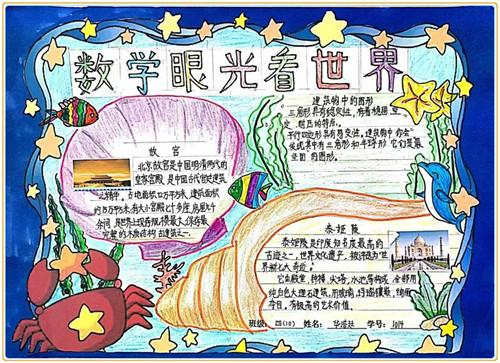 数学眼光看世界
建筑物中的图形
三角形具有稳定性,有着稳固、坚
定、耐压的特点。
平行四边形具有易变性。建筑物中你会
发现其中有三角形和平行形,它们是最
坚固的图形。
故宫
北京故宫是中国明清两代的
皇家宫殿,是中国古代宫廷建筑
之精华。占地面积72万平方米,建筑面积
约15万平方米,有大小宫殿七十多座,房屋九千
余间,是世界上现存规模最大、保存最
完整的木质结构古建筑之一。
泰姬陵
泰姬陵是印度知名度最高的
古迹之一,世界文化遗产,被评选为"世
界新七大奇迹"。
它由殿堂、钟楼、尖塔、水池等构成,全部用
纯白色大理石建筑,用玻璃、玛瑙镶嵌,绚丽
夺目,有极高的艺术价值。
班级:四(10) 姓名: 学号: